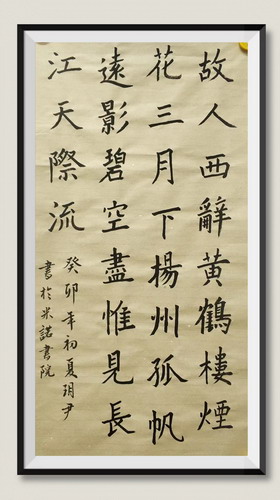 故人西辭黃鶴樓煙
花三月下楊州孤帆
遠影碧空盡惟見長
江天際流
癸卯年初夏玥尹
書於米諾書院